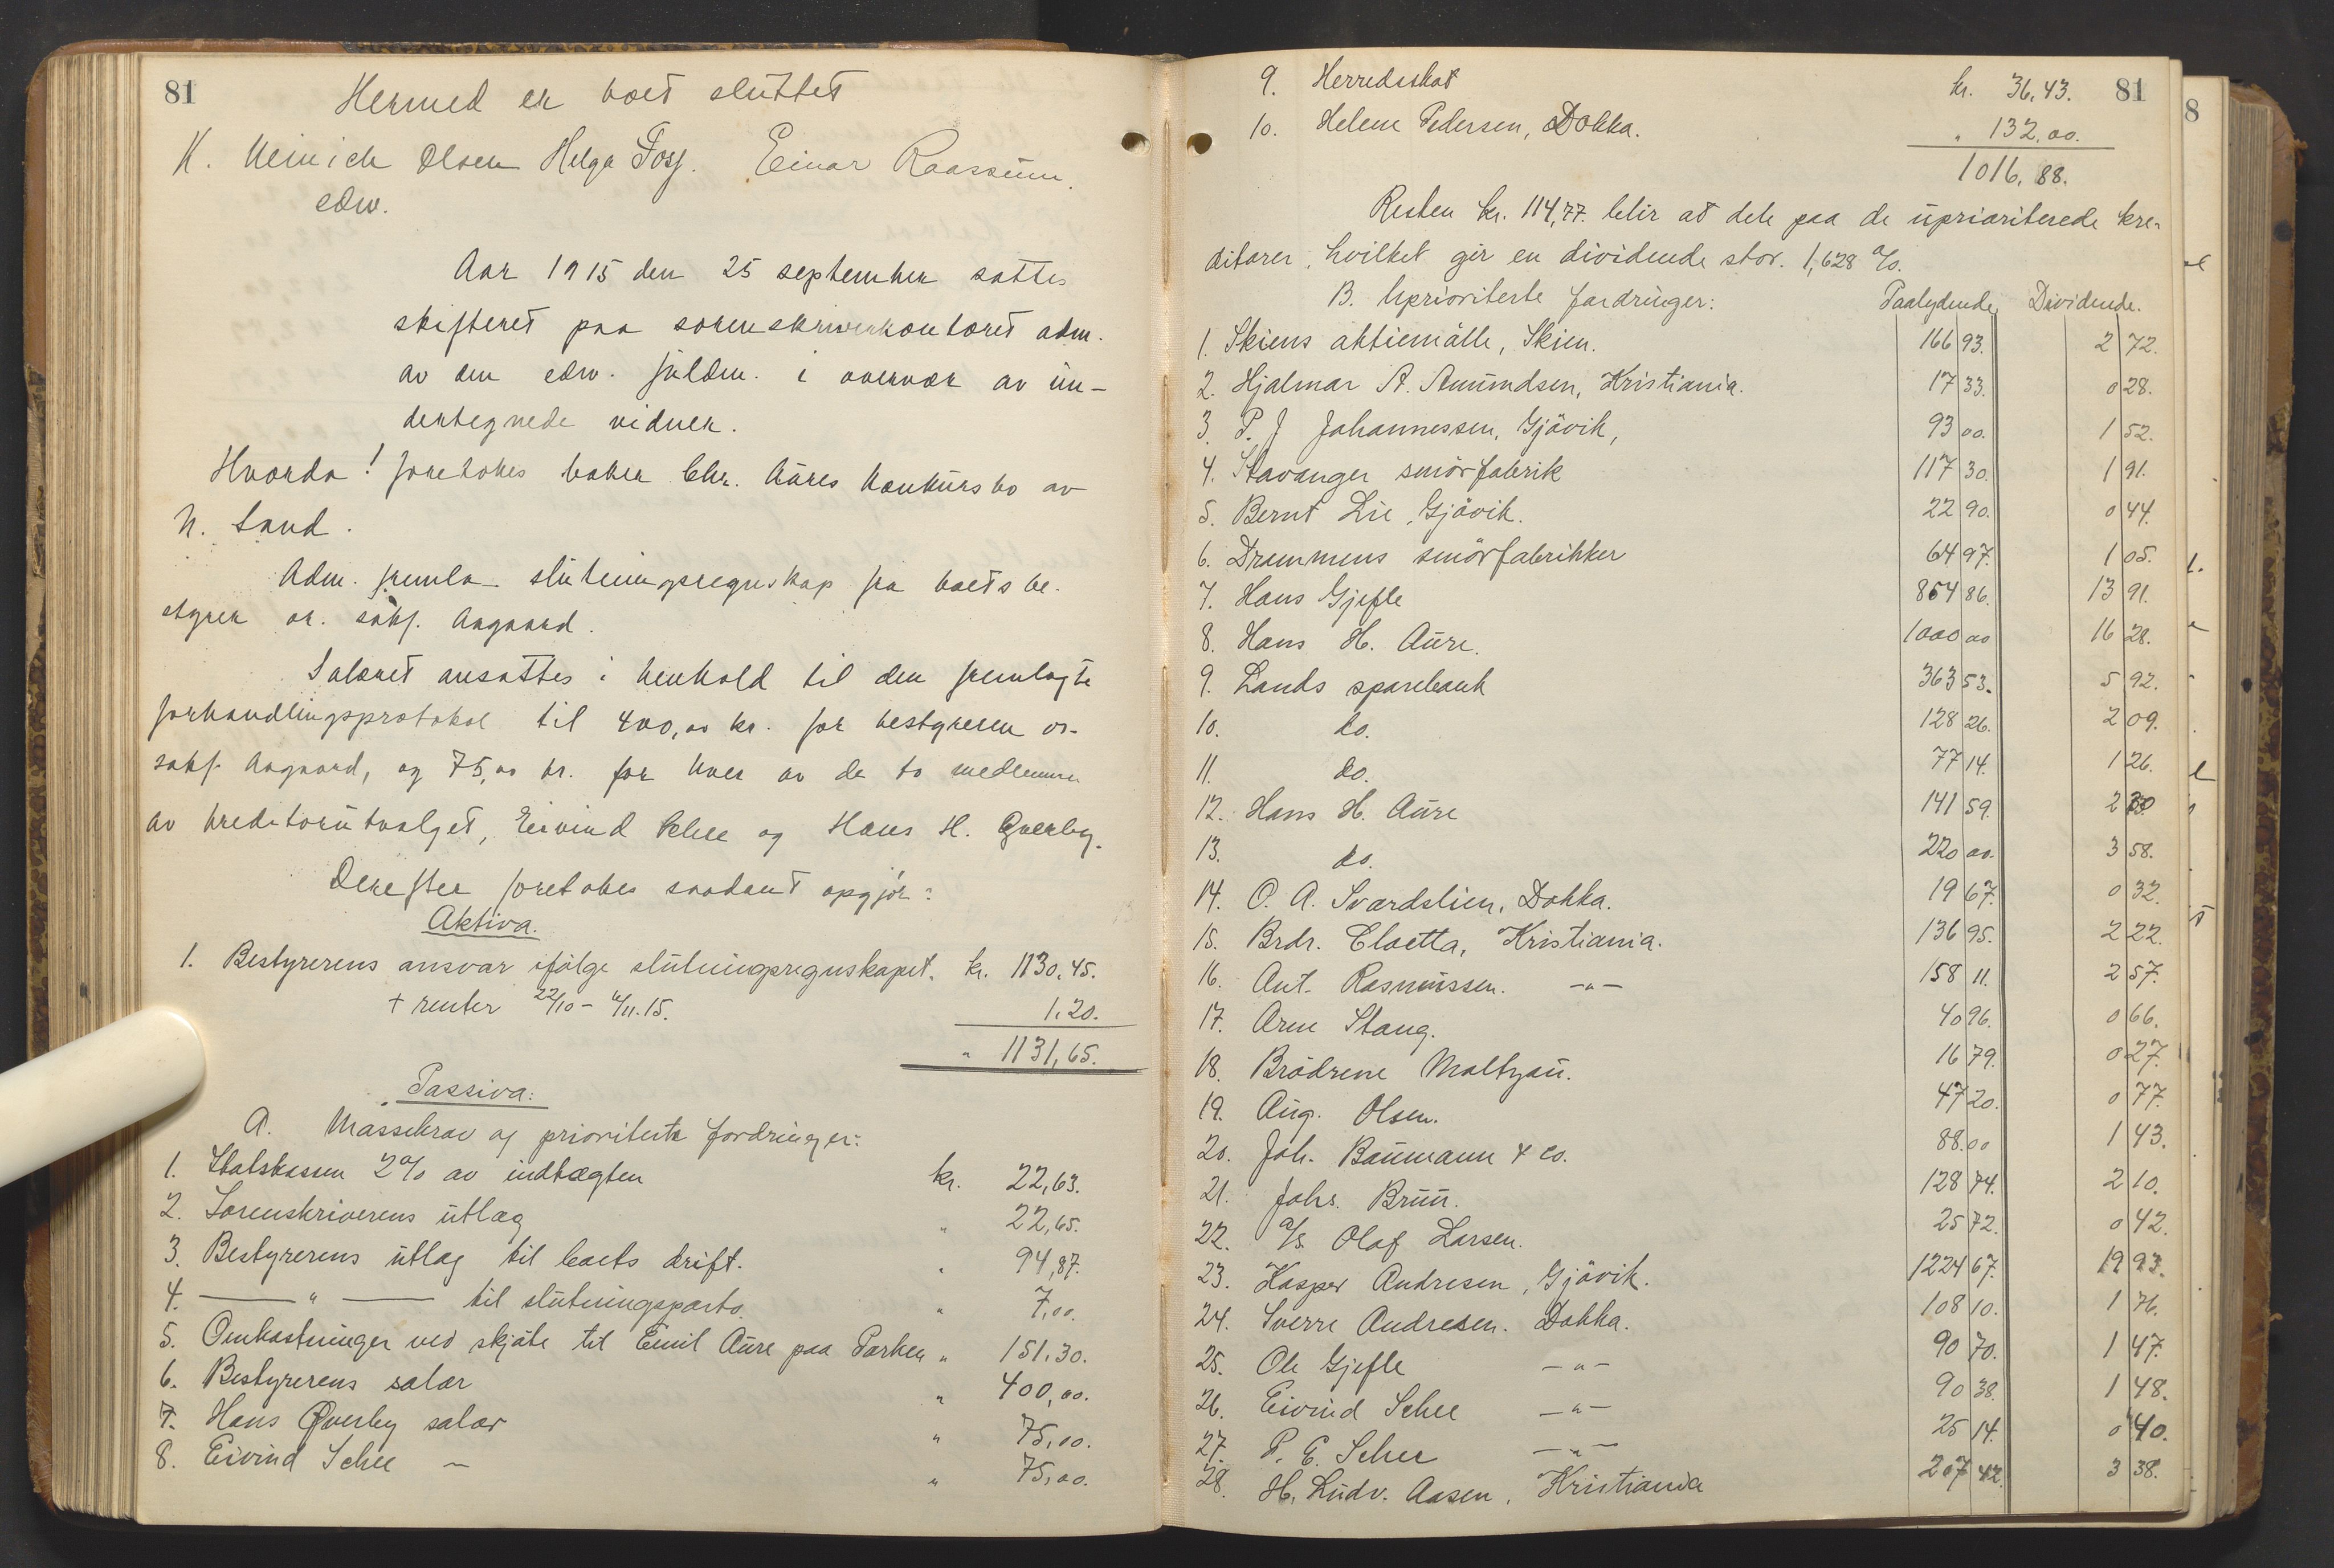 81
Hermed er boet sluttet
K. Meinich Olsen Helga Fosj. Einar Raassum.
edw.
Aar 1915 den 25 september sattes
skifteret paa sorenskriverkontoret adm.
av den edw. fuldm. i overvær av un-
dertegnede vidner.
Hvorda! foretokes boken Chr. Aures konkursbo av
N. Land.
Adm. fremla slutningsregnskap fra boets be-
styrer or. sakf. Aagaard.
Salæret ansattes i henhold til den fremlagte
forhandlingsprotokol til 400,00 kr. for bestyreren or.
sakf. Aagaard, og 75,00 kr. for hver av de to medlemmer
av kreditorutvalget, Eivind Schee og Hans H. Øverby.
Derefter foretokes saadant opgjör:
Aktiva.
1. Bestyrerens ansvar ifölge slutningsregnskapet. kr. 1130.45.
+ renter 22/10 - 4/11.15. 1.20.
" 1131,65.
Passiva:
A. Massekrav og prioriterte fordringer:
1. Statskassen 2% av indtægten kr. 22,63.
2. Sorenskriverens utlæg " 22,65.
3. Bestyrerens utlæg til boets drift. " 94,87.
4. — " — til slutningsporto. " 7,00.
5. Omkostninger ved skjöte til Emil Aure paa Parken " 151.30.
6. Bestyrerens salær " 400,00.
7. Hans Øverby salær " 75,00.
8. Eivind Schee — " 75,00.
81
9. Herredsskat kr. 36,43.
10. Helene Pedersen, Dokka. " 132,00.
1016,88.
Resten kr. 114,77. blir at dele paa de uprioriterede kre-
ditorer, hvilket gir en dividende stor. 1,628 %.
B. Uprioriterte fordringer: Paalydende Dividende.
1. Skiens aktiemölle, Skien. 166 93. 2 72.
2. Hjalmar A. Amundsen, Kristiania. 17 33. 0 28.
3. P. J Johannessen, Gjövik, 93 00. 1 52.
4. Stavanger smörfabrik 117 30. 1 91.
5. Bernt Lie, Gjövik. 22 90. 0 44.
6. Drammens smörfabrikker 64 97. 1 05.
7. Hans Gjefle 854 86. 13 91.
8. Hans H. Aure. 1000 00 16 28.
9. Lands sparebank 363 53. 5 92.
10. do. 128 26. 2 09.
11. do. 77 14. 1 26.
12. Hans H. Aure 141 59. 2 30
13. do. 220 00. 3 58.
14. O. A. Sværdslien, Dokka. 19 67. 0 32.
15. Brdr. Cloetta, Kristiania. 136 95. 2 22.
16. Ant. Rasmussen. -"- 158 11. 2 57.
17. Arne Stang. 40 96. 0 66.
18. Brödrene Maltzau. 16 79. 0 27.
19. Aug. Olsen. 47 20. 0 77.
20. Joh. Baumann & co. 88.00 1 43.
21. Johs. Bruu. 128 74. 2 10.
22. A/S. Olaf Larsen. 25 72. 0 42.
23. Kasper Andresen, Gjövik. 1224 67. 19 93.
24. Sverre Andresen. Dokka. 108 10. 1 76.
25. Ole Gjefle -"- 90 70. 1 47.
26. Eivind Schee -"- 90 38. 1 48.
27. P. E. Schee -"- 25 14. 0 40.
28. H. Ludv. Aasen, Kristiania 207 42. 3 38.
8